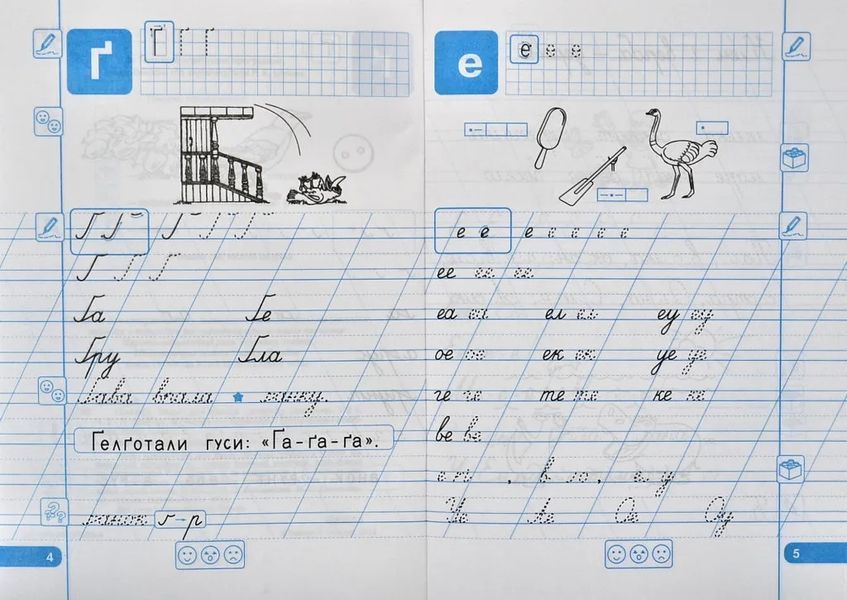 ґ
Ґ Ґ Ґ
Ґ Ґ Ґ Ґ Ґ
Ґ Ґ Ґ
Ґа Ґе
Ґру Ґла
Ґава вкрала ґанку.
Ґелґотали гуси: «Ґа-ґа-ґа».
ґанок ґ → р
4
е
е е е
е е е е е е е
ее ее ее
еа еа ел ел еу еу
ое ое ек ек уе уе
ге ге те те ке ке
ве ве
Ус Ле Ое Оу
5